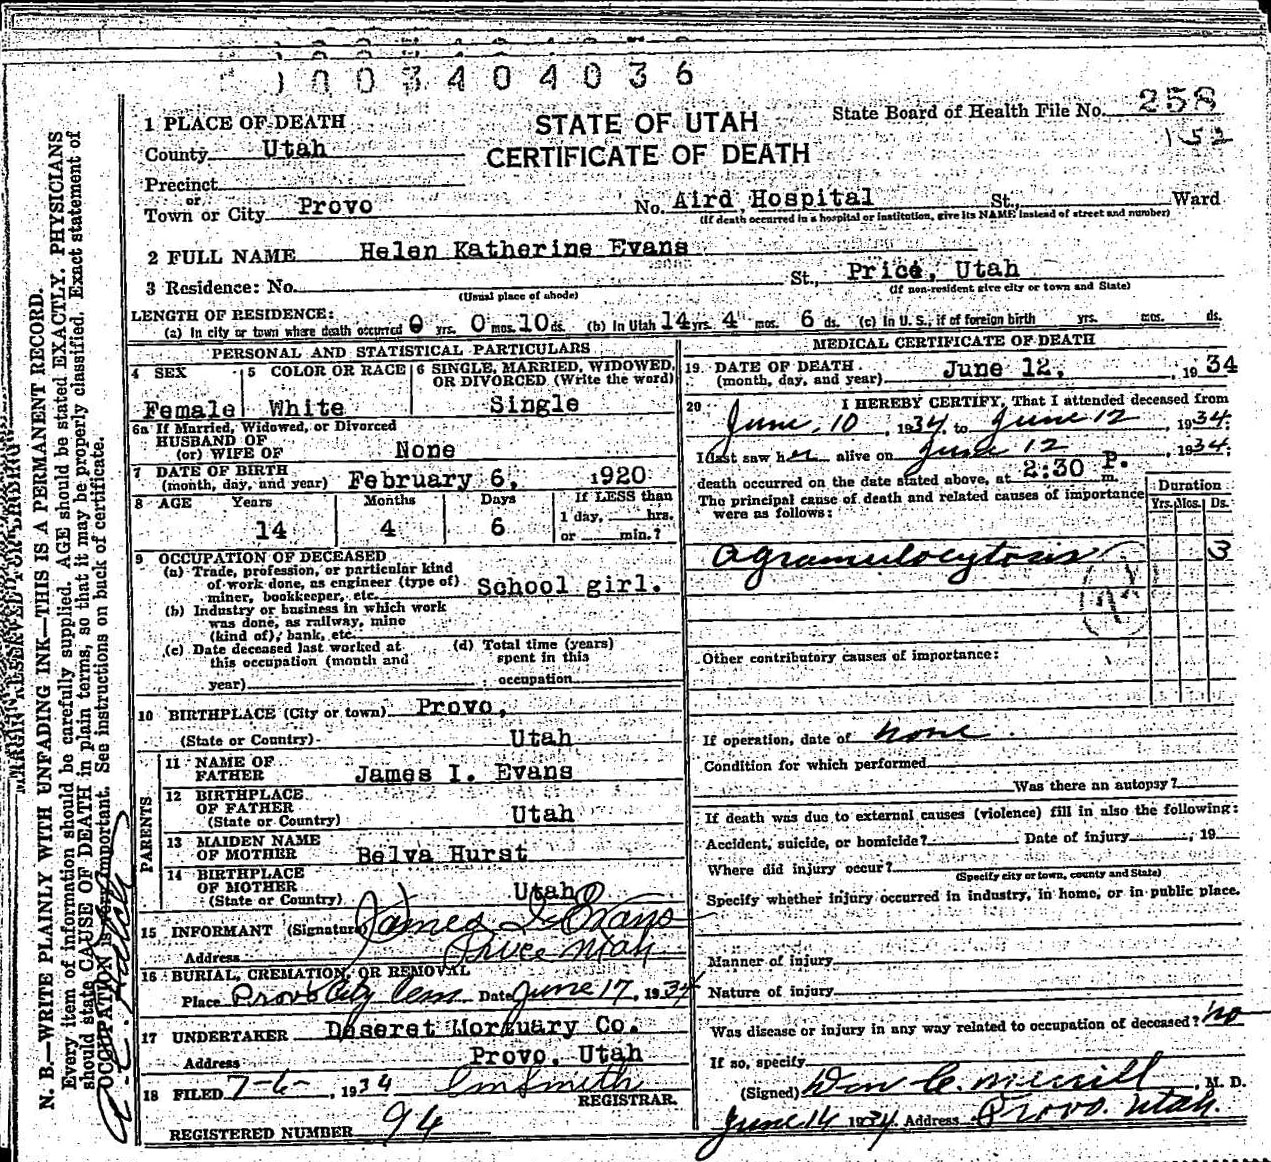 1 0 0 3 4 0 4 0 3 6
State Board of Health File No. 258
152
STATE OF UTAH
CERTIFICATE OF DEATH
1 PLACE OF DEATH
County Utah
Precinct
or
Town or City Provo No. Aird Hospital St., Ward
(If death occurred in a hospital or institution, give its NAME instead of street and number)
2 FULL NAME Helen Katherine Evans
3 Residence: No. St., Price, Utah
(Usual place of abode) (If non-resident give city or town and State)
LENGTH OF RESIDENCE:
(a) In city or town where death occurred 0 yrs. 0 mos. 10 ds. (b) In Utah 14 yrs. 4 mos. 6 ds. (c) In U. S., if of foreign birth yrs. mos. ds.
PERSONAL AND STATISTICAL PARTICULARS
4 SEX
Female
5 COLOR OR RACE
White
6 SINGLE, MARRIED, WIDOWED,
OR DIVORCED (Write the word)
Single
6a If Married, Widowed, or Divorced
HUSBAND OF
(or) WIFE OF None
7 DATE OF BIRTH
(month, day, and year) February 6, 1920
8 AGE Years Months Days If LESS than
14 4 6 1 day, hrs.
or min.?
9 OCCUPATION OF DECEASED
(a) Trade, profession, or particular kind
of work done, as engineer (type of)
miner, bookkeeper, etc. School girl.
(b) Industry or business in which work
was done, as railway, mine
(kind of), bank, etc.
(c) Date deceased last worked at
this occupation (month and
year)
(d) Total time (years)
spent in this
occupation
10 BIRTHPLACE (City or town) Provo,
(State or Country) Utah
PARENTS
11 NAME OF
FATHER James I. Evans
12 BIRTHPLACE
OF FATHER
(State or Country) Utah
13 MAIDEN NAME
OF MOTHER Belva Hurst
14 BIRTHPLACE
OF MOTHER
(State or Country) Utah
15 INFORMANT (Signature) James I. Evans
Address Price Utah
16 BURIAL, CREMATION, OR REMOVAL
Place Provo City Cem Date June 17, 1934
17 UNDERTAKER Deseret Mortuary Co.
Address Provo, Utah
18 FILED 7-6-, 1934 Smith
REGISTRAR.
REGISTERED NUMBER 94
MEDICAL CERTIFICATE OF DEATH
19 DATE OF DEATH
(month, day, and year) June 12, 1934
20 I HEREBY CERTIFY, That I attended deceased from
June, 10, 1934, to June 12, 1934.
I last saw her alive on June 12, 1934.
death occurred on the date stated above, at 2:30 P. m.
The principal cause of death and related causes of importance
were as follows:
Duration
Yrs. Mos. Ds.
Agramulocytosis 3
Other contributory causes of importance:
If operation, date of none
Condition for which performed
Was there an autopsy?
If death was due to external causes (violence) fill in also the following:
Accident, suicide, or homicide? Date of injury , 19
Where did injury occur?
(Specify city or town, county and State)
Specify whether injury occurred in industry, in home, or in public place.
Manner of injury
Nature of injury
Was disease or injury in any way related to occupation of deceased? no
If so, specify
(Signed) Wm C. Merrill, M. D.
June 14 1934. Address Provo. Utah.
MARGIN RESERVED FOR BINDING
N. B.—WRITE PLAINLY WITH UNFADING INK—THIS IS A PERMANENT RECORD.
Every item of information should be carefully supplied. AGE should be stated EXACTLY. PHYSICIANS
should state CAUSE OF DEATH in plain terms, so that it may be properly classified. Exact statement of
OCCUPATION is very important. See instructions on back of certificate.